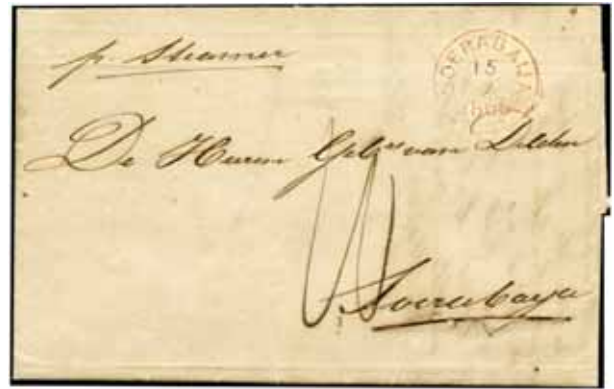 pr Steamer
SOERABAIJA
15
De Heeren Gebrs van Delden
Soerabaya